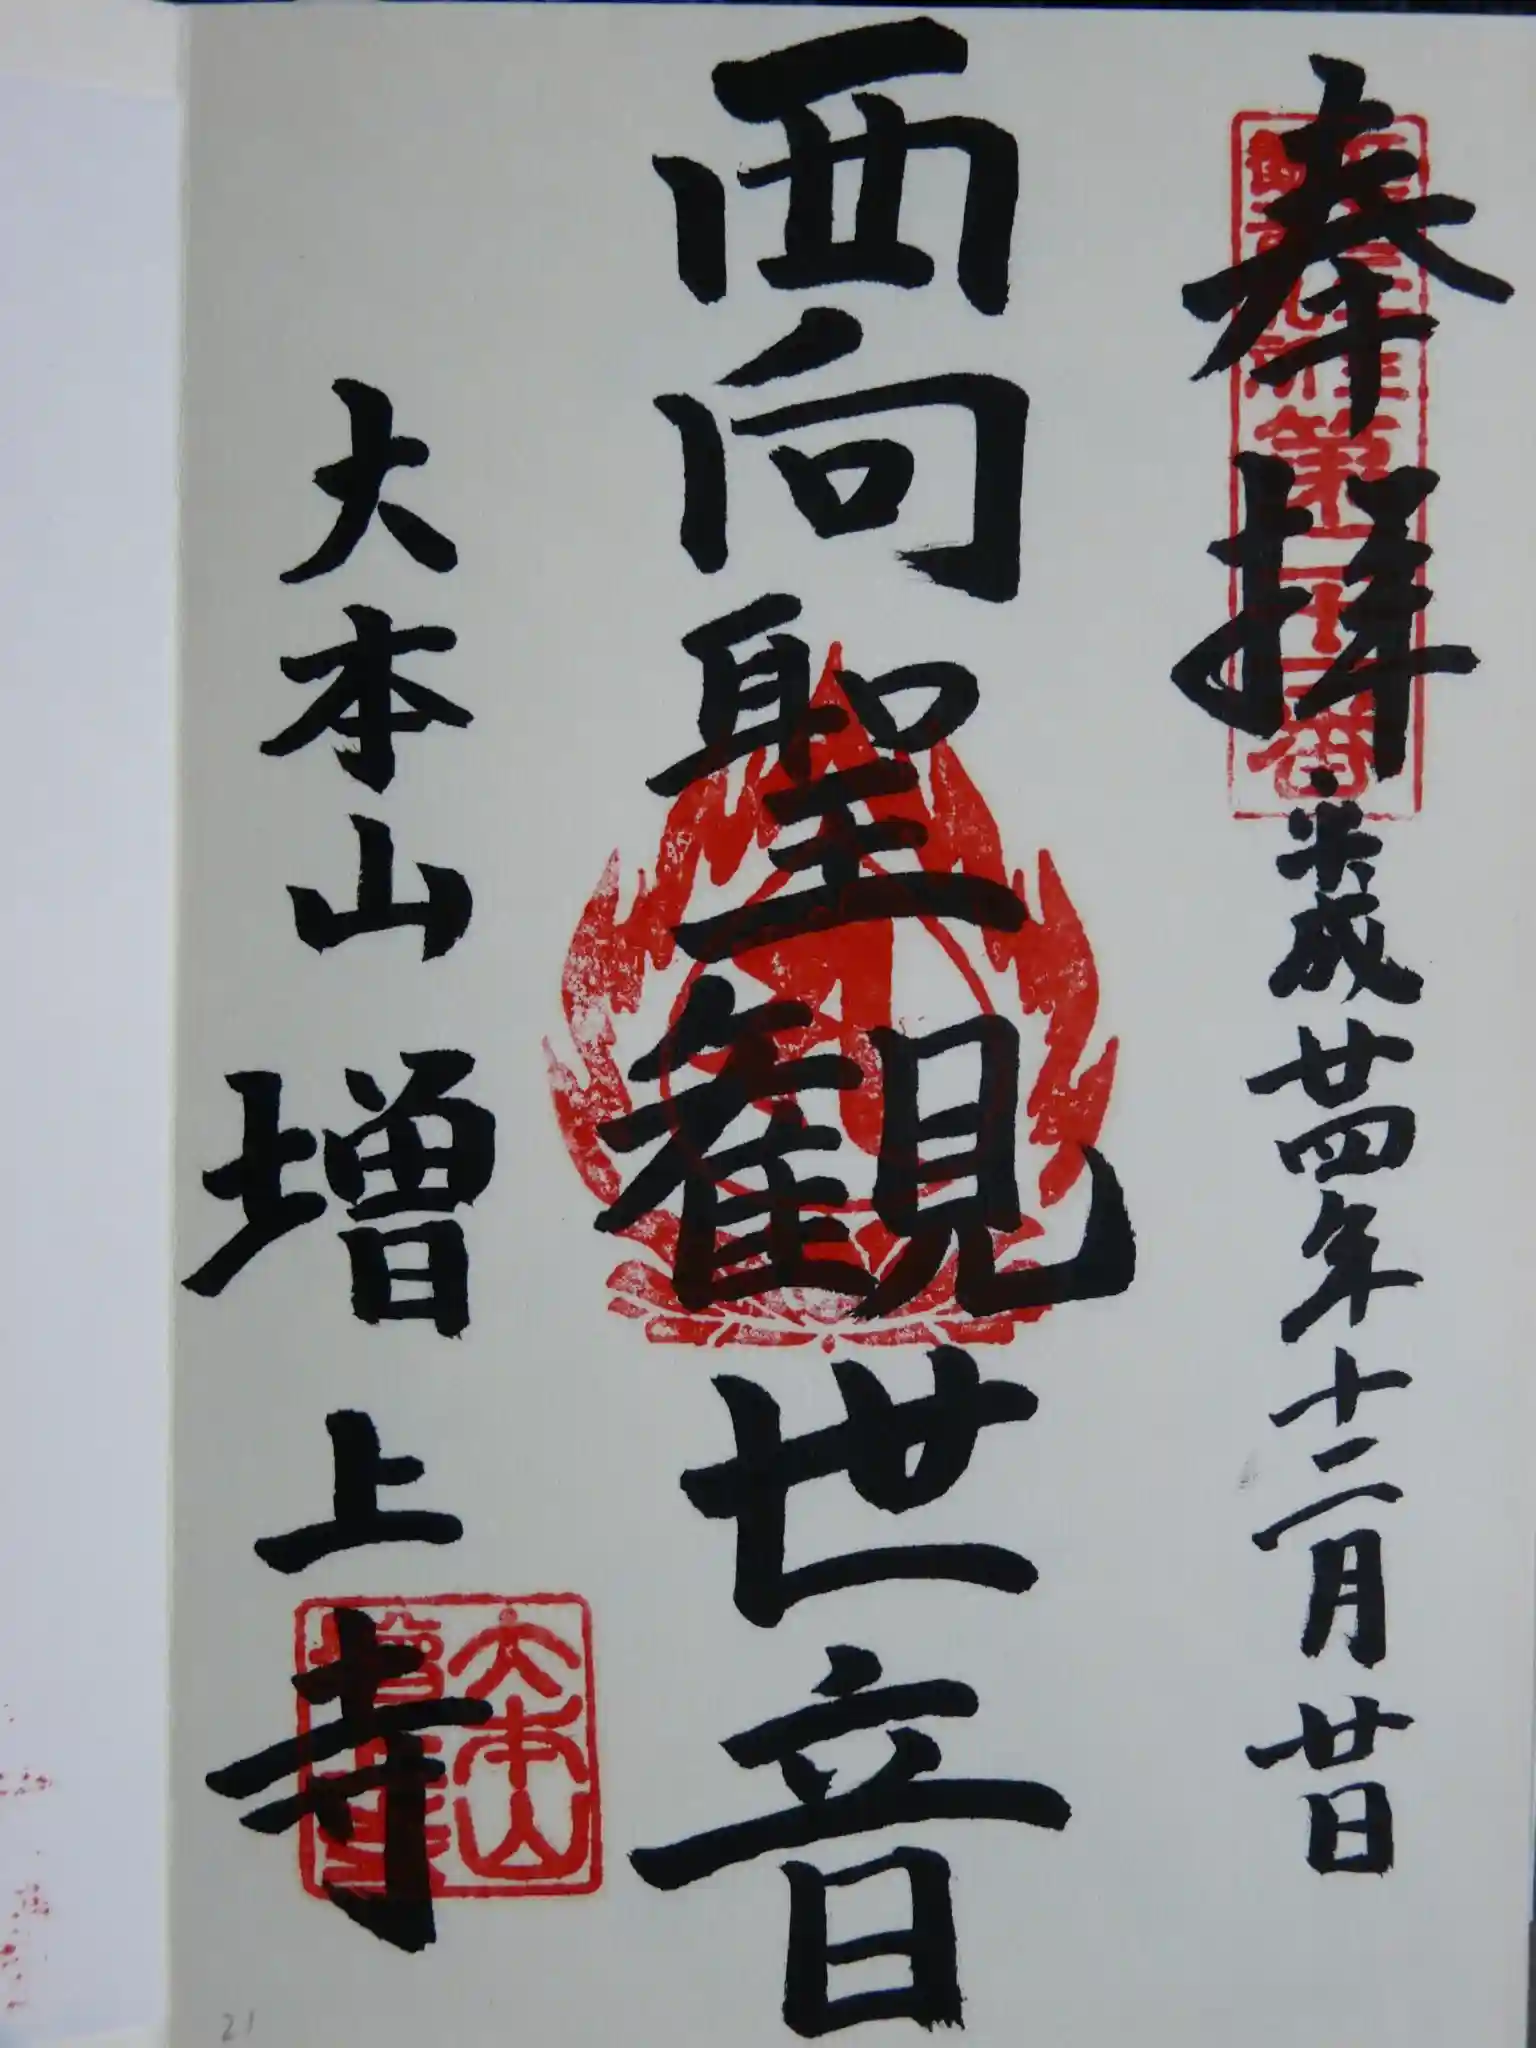 奉拝
平成廿四年十二月廿日
西向聖観世音
大本山増上寺
大本山
21